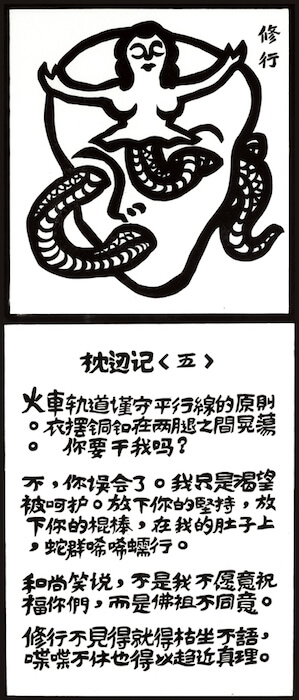 修
行
枕边记〈五〉
火車轨道谨守平行線的原則
。衣摆铜釦在两腿之間晃蕩
。你要干我吗？
不，你误会了。我只是渴望
被呵护。放下你的堅持，放
下你的棍棒，在我的肚子上
，蛇群唏唏蠕行。
和尚笑说，不是我不愿意祝
福你們，而是佛祖不同意。
修行不見得就得枯坐不語，
喋喋不休也得以趋近真理。